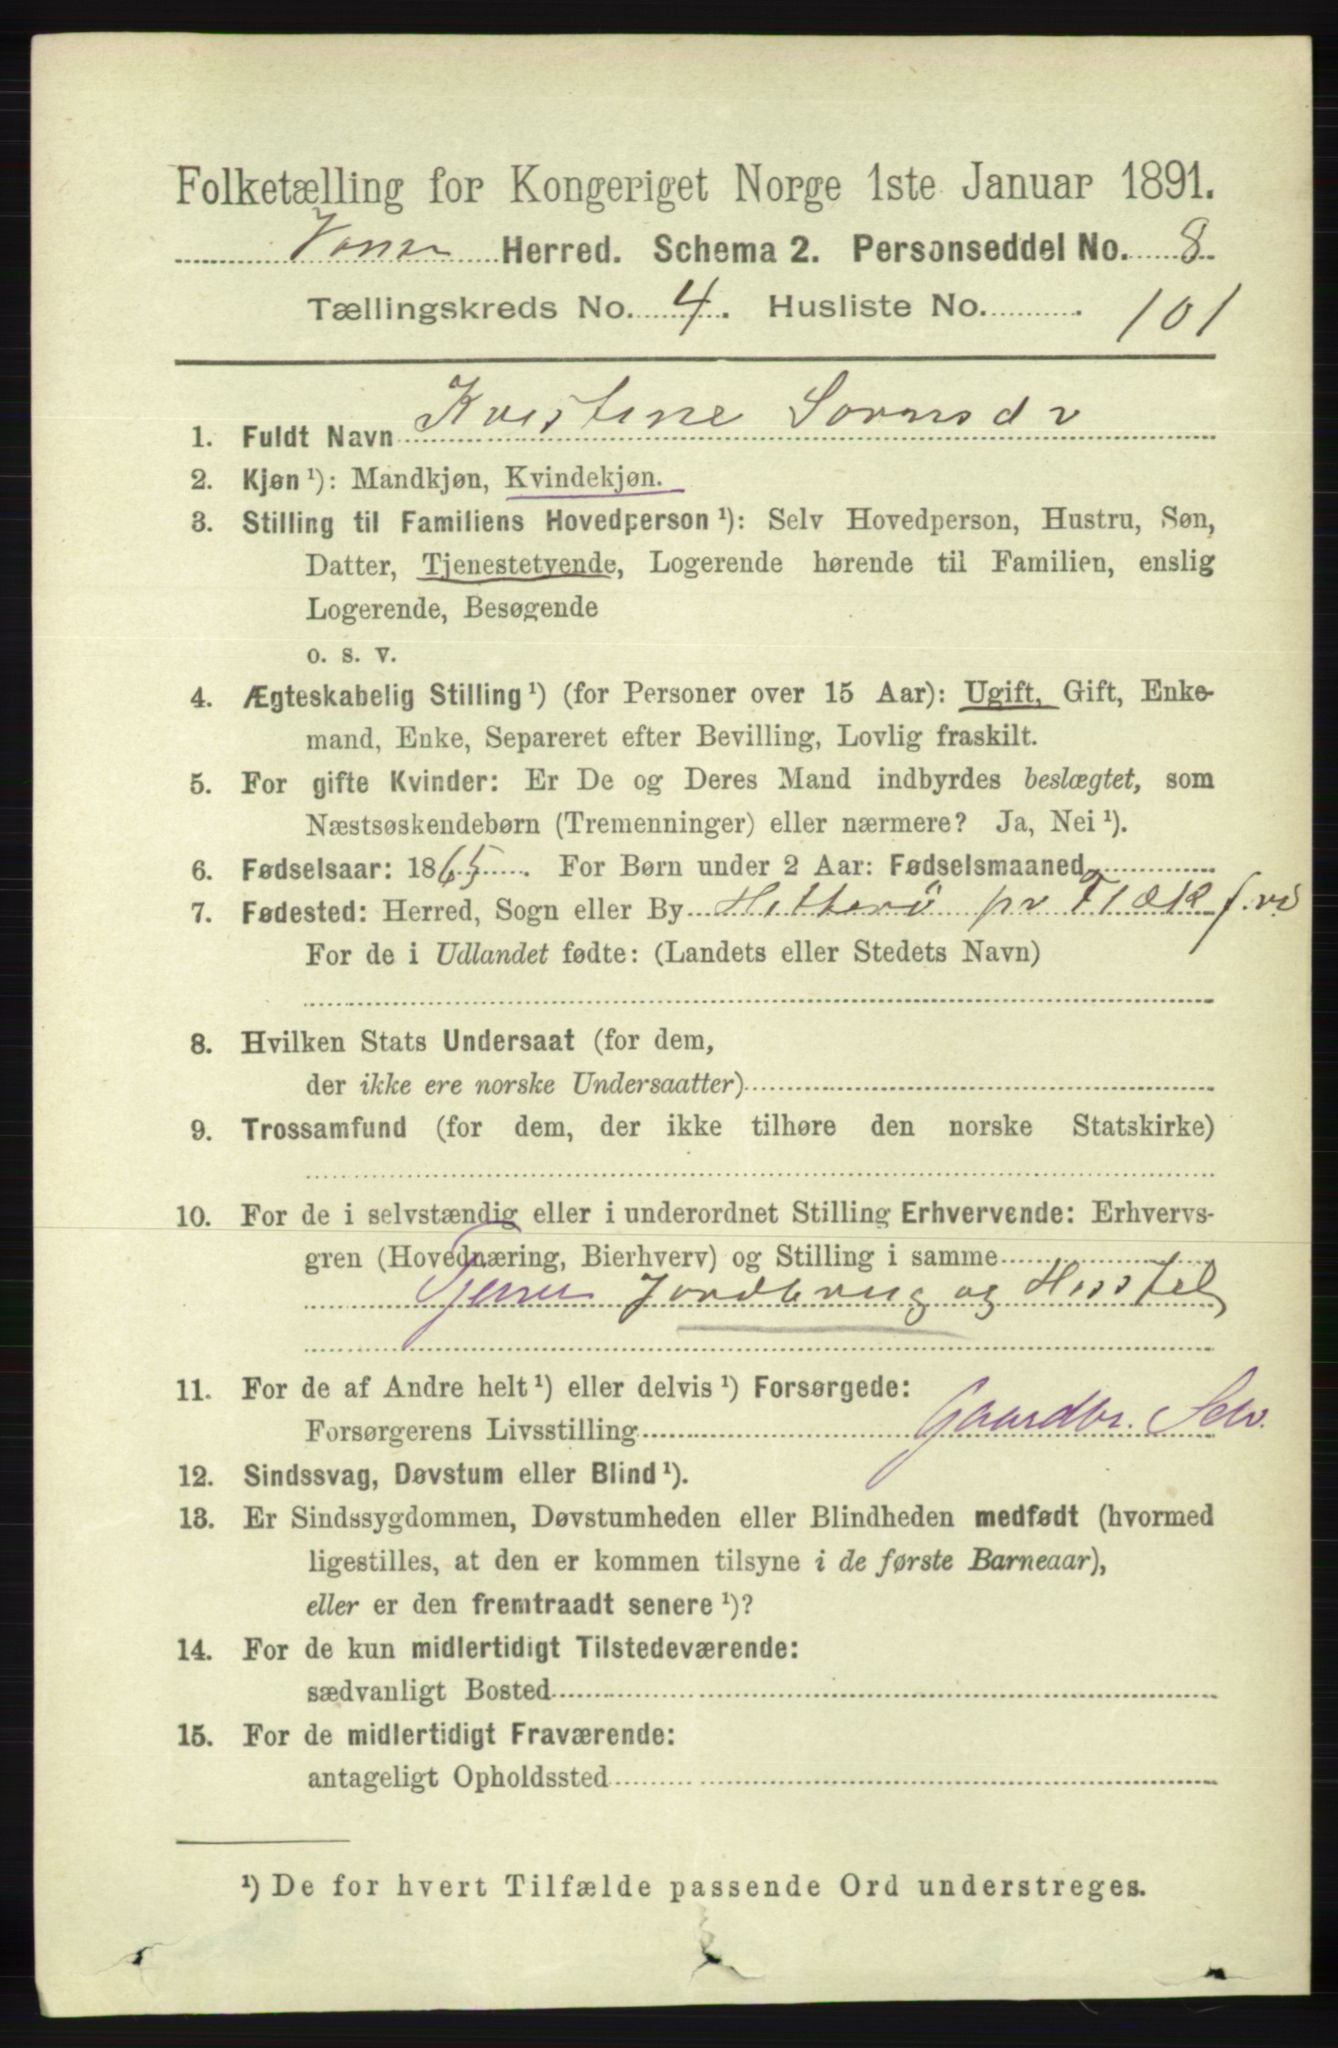 Folketælling for Kongeriget Norge 1ste Januar 1891.
Herred. Schema 2. Personseddel No. 8
Tællingskreds No. 4. Husliste No. 101
1. Fuldt Navn Kristine
2. Kjøn ¹): Mandkjøn, Kvindekjøn.
3. Stilling til Familiens Hovedperson ¹): Selv Hovedperson, Hustru, Søn,
Datter, Tjenestetyende, Logerende hørende til Familien, enslig
Logerende, Besøgende
o. s. v.
4. Ægteskabelig Stilling ¹) (for Personer over 15 Aar): Ugift, Gift, Enke-
mand, Enke, Separeret efter Bevilling, Lovlig fraskilt.
5. For gifte Kvinder: Er De og Deres Mand indbyrdes beslægtet, som
Næstsøskendebørn (Tremenninger) eller nærmere? Ja, Nei ¹).
6. Fødselsaar: 1865. For Børn under 2 Aar: Fødselsmaaned
7. Fødested: Herred, Sogn eller By Hitterø pr
For de i Udlandet fødte: (Landets eller Stedets Navn)
8. Hvilken Stats Undersaat (for dem,
der ikke ere norske Undersaatter)
9. Trossamfund (for dem, der ikke tilhøre den norske Statskirke)
10. For de i selvstændig eller i underordnet Stilling Erhvervende: Erhvervs-
gren (Hovednæring, Bierhverv) og Stilling i samme
Jordbrug og Husstel
11. For de af Andre helt ¹) eller delvis ¹) Forsørgede:
Forsørgerens Livsstilling Gaardbr. Selv.
12. Sindssvag, Døvstum eller Blind ¹).
13. Er Sindssygdommen, Døvstumheden eller Blindheden medfødt (hvormed
ligestilles, at den er kommen tilsyne i de første Barneaar),
eller er den fremtraadt senere ¹)?
14. For de kun midlertidigt Tilstedeværende:
sædvanligt Bosted
15. For de midlertidigt Fraværende:
antageligt Opholdssted
¹) De for hvert Tilfælde passende Ord understreges.